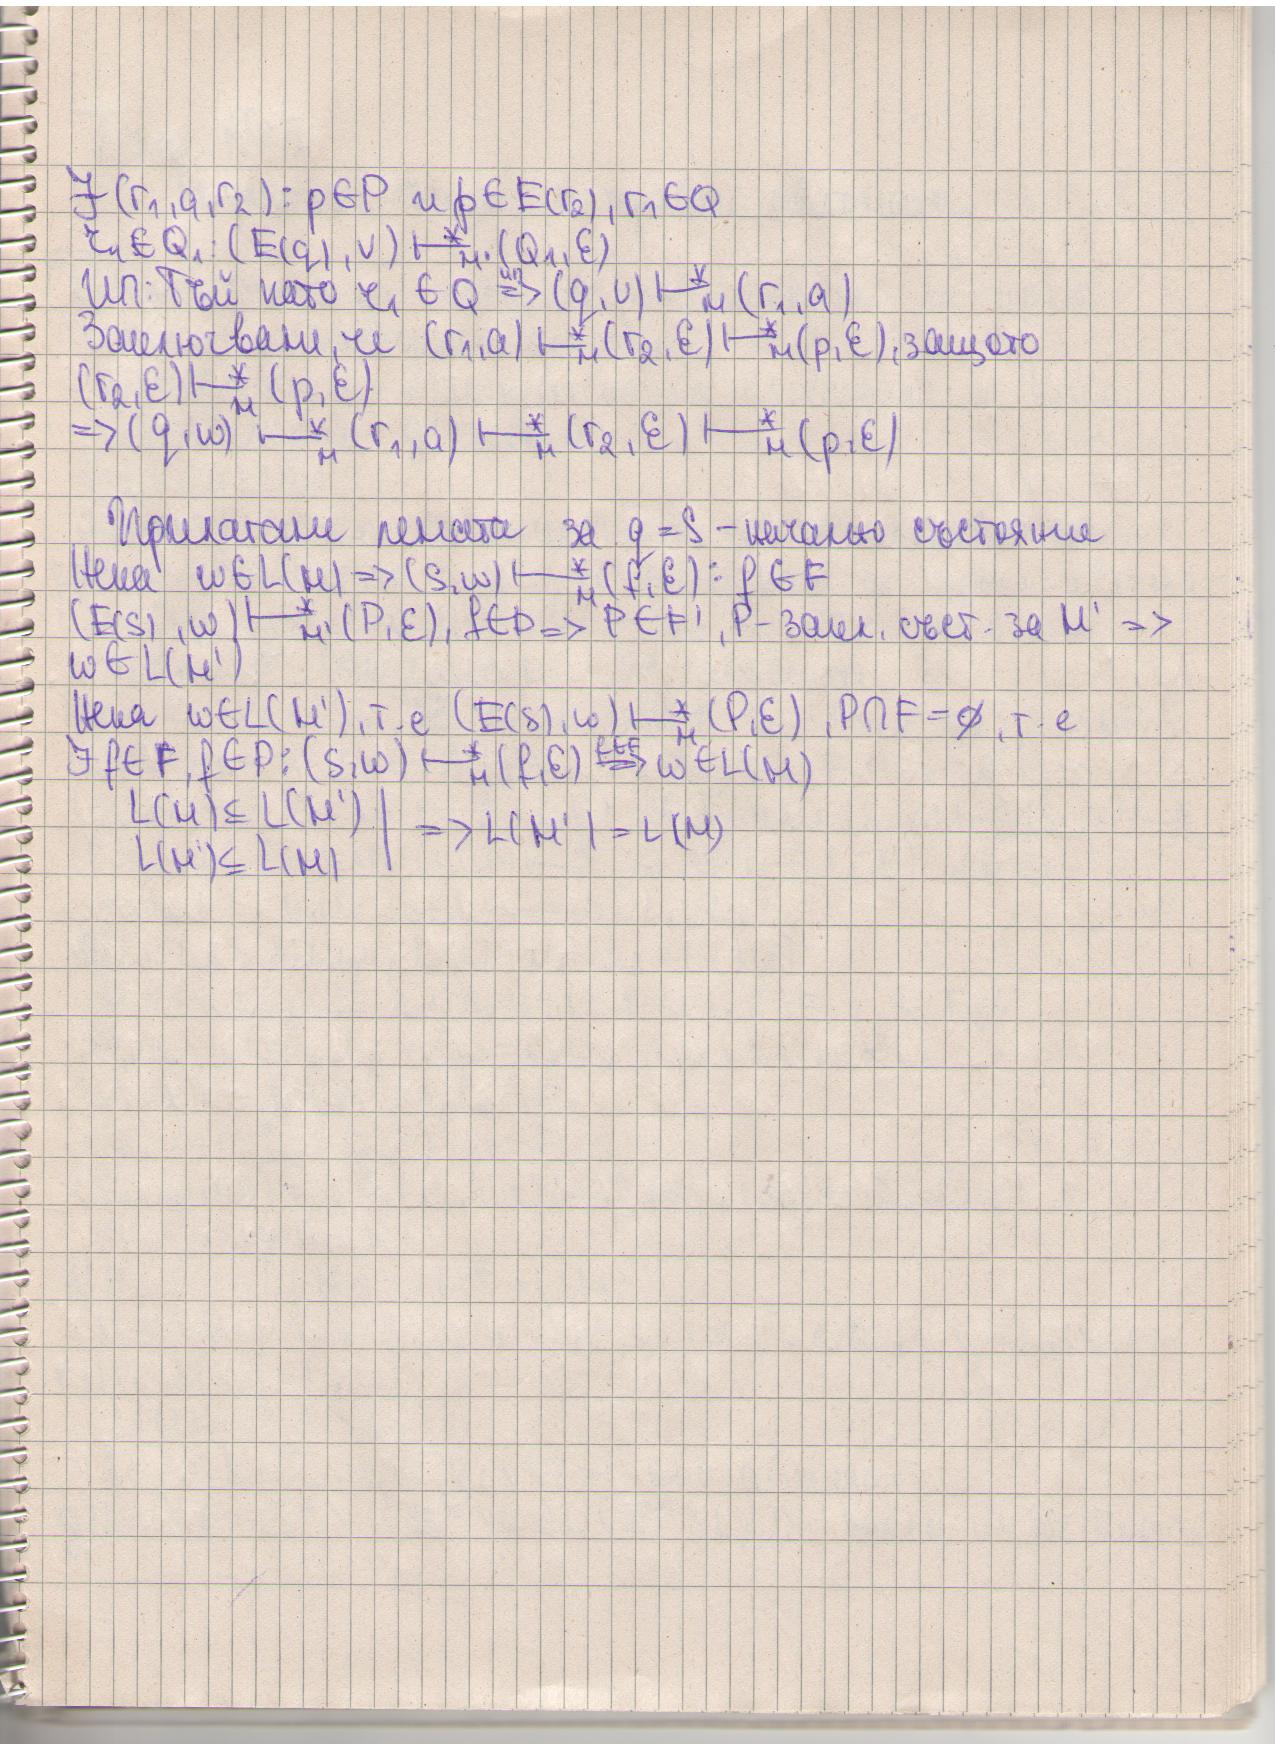 ∃ (r₁,a,r₂): p∈P и p∈E(r₂), r₁∈Q
r₁∈Q₁: (E(q),υ) ⊢*ₘ' (Q₁,ε)
ИП: Тъй като r₁∈Q =ип=> (q,υ) ⊢*ₘ (r₁,a)
Заключваме, че (r₁,a) ⊢*ₘ (r₂,ε) ⊢*ₘ (p,ε), защото
(r₂,ε) ⊢*ₘ (p,ε)
=> (q,w) ⊢*ₘ (r₁,a) ⊢*ₘ (r₂,ε) ⊢*ₘ (p,ε)
Прилагаме лемата за q=s - начално състояние
Нека w∈L(M) => (s,w) ⊢*ₘ (f,ε): f∈F
(E(s),w) ⊢*ₘ' (P,ε), f∈P => P∈F', P - закл. съст. за M' =>
w∈L(M')
Нека w∈L(M'), т.е (E(s),w) ⊢*ₘ (P,ε), P∩F=∅, т.е
∃ f∈F, f∈P: (s,w) ⊢*ₘ (f,ε) => w∈L(M)
L(M) ⊆ L(M') | => L(M') = L(M)
L(M') ⊆ L(M)